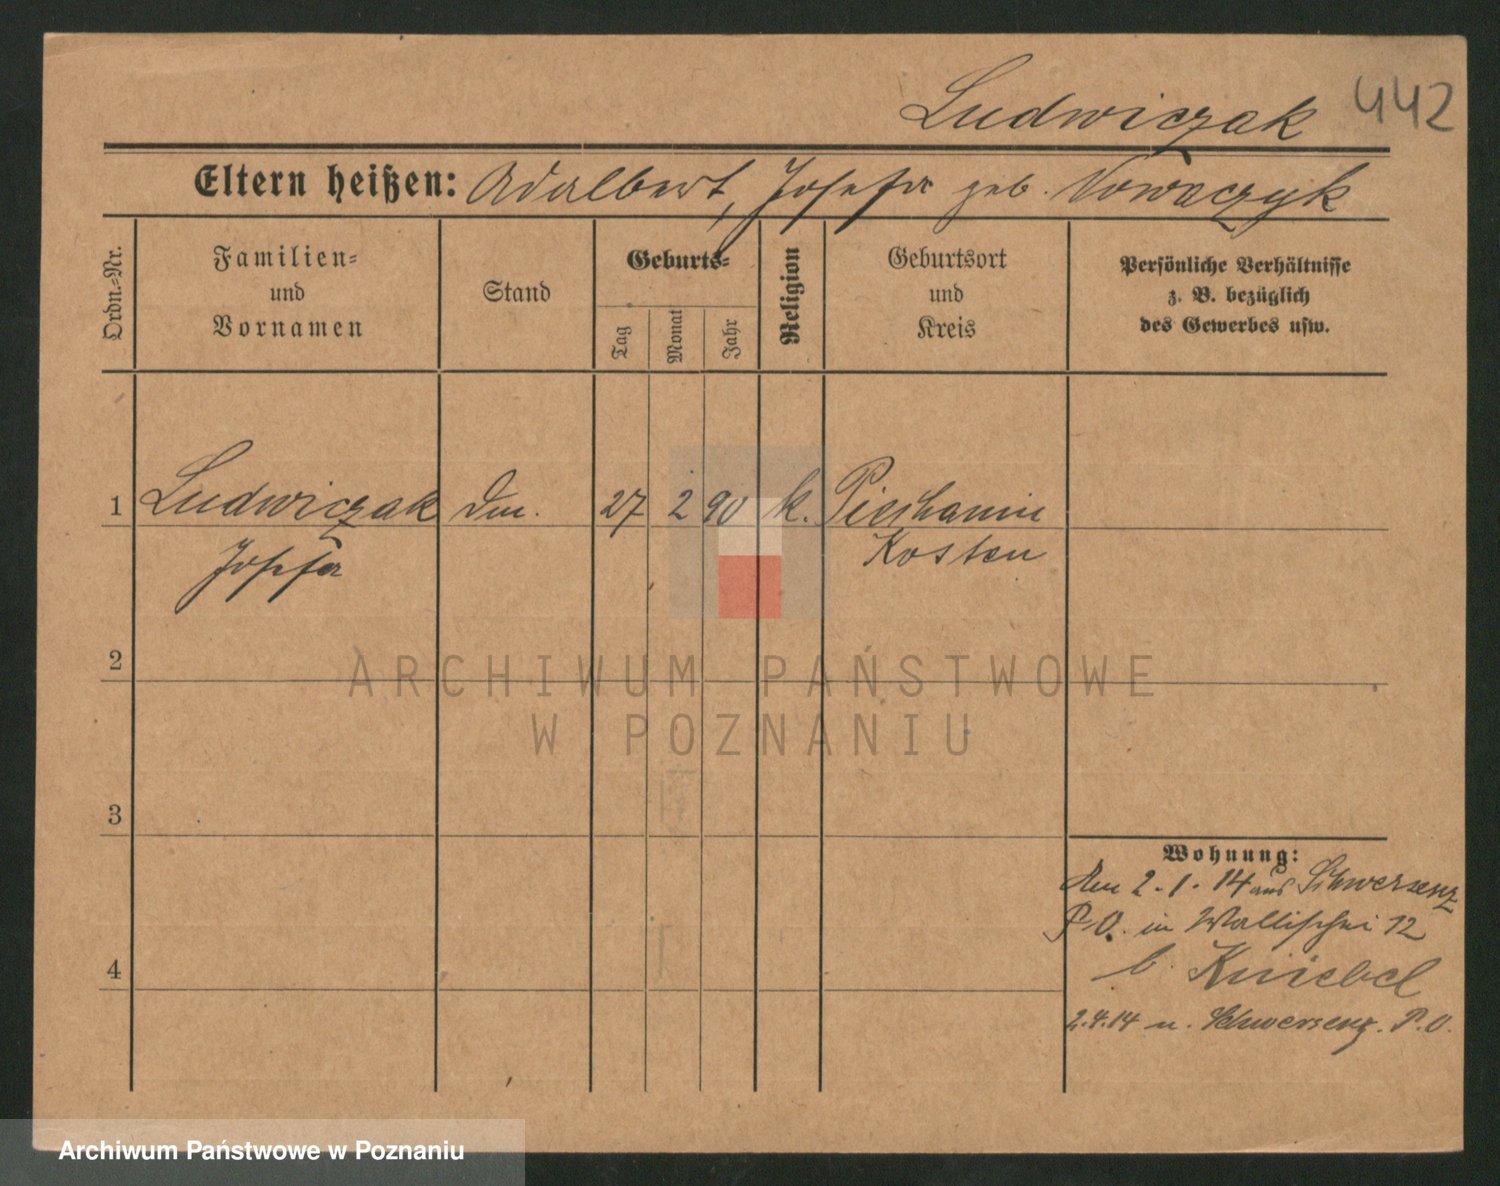 Ludwiczak 442
Eltern heißen: Adalbert, Josefa geb. Nowaczyk
Ordn.-Nr.
Familien-
und
Vornamen
Stand
Geburts-
Tag
Monat
Jahr
Religion
Geburtsort
und
Kreis
Persönliche Verhältnisse
z. B. bezüglich
des Gewerbes usw.
1 Ludwiczak 27 2 90 k.
Josefa Kosten
2
ARCHIWUM PAŃSTWOWE
W POZNANIU
3
4
Wohnung:
Am 2.1.14 aus Schwersenz
P.O. in Wallischei 12
b. Kniebel
2.4.14 n. Schwersenz. P.O.
Archiwum Państwowe w Poznaniu